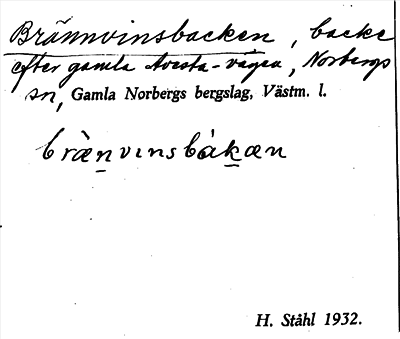 Brännvinsbacken, backe
efter gamla Avesta-vägen, Norbergs
sn, Gamla Norbergs bergslag, Västm. l.
bràn̲vinsbàk̲æn
H. Ståhl 1932.